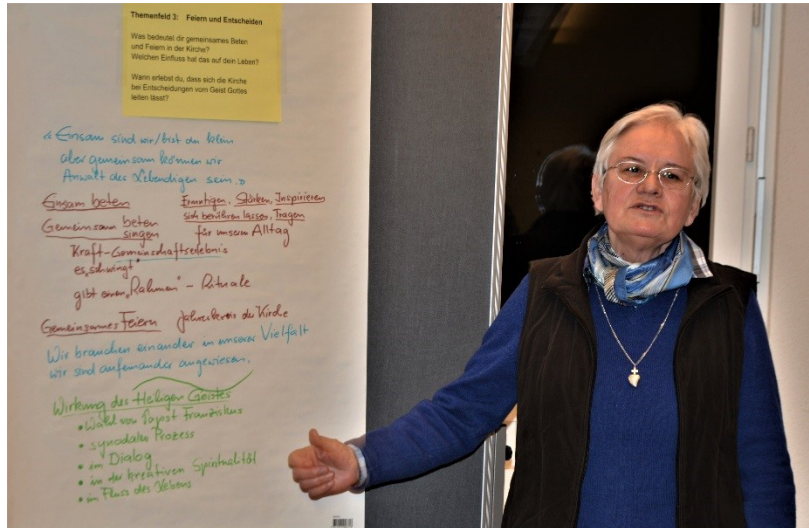 Themenfeld 3: Feiern und Entscheiden
Was bedeutet dir gemeinsames Beten
und Feiern in der Kirche?
Welchen Einfluss hat das auf dein Leben?
Wann erlebst du, dass sich die Kirche
bei Entscheidungen vom Geist Gottes
leiten lässt?
« Einsam sind wir/bist du klein
aber gemeinsam können wir
Anwalt des Lebendigen sein. »
Einsam beten
Gemeinsam beten
singen
Ermutigen, Stärken, Inspirieren
sich berühren lassen, Tragen
für unseren Alltag
Kraft-Gemeinschaftserlebnis
es „schwingt"
gibt einen „Rahmen" - Rituale
Gemeinsames Feiern Jahreskreis der Kirche
Wir brauchen einander in unserer Vielfalt
wir sind aufeinander angewiesen.
Wirkung des Heiligen Geistes
• Wahl von Papst Franziskus
• synodaler Prozess
• im Dialog
• in der kreativen Spiritualität
• im Fluss des Lebens